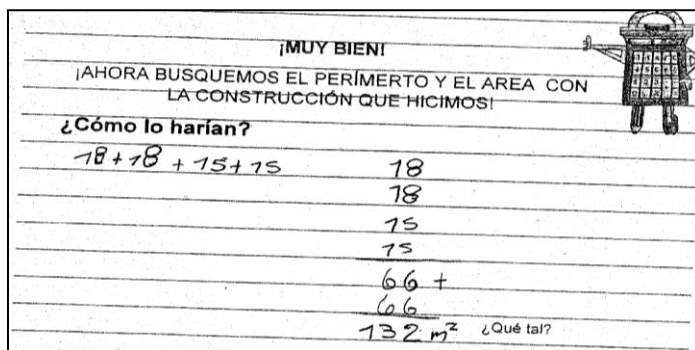 ¡MUY BIEN!
¡AHORA BUSQUEMOS EL PERÍMERTO Y EL AREA CON
LA CONSTRUCCIÓN QUE HICIMOS!
¿Cómo lo harían?
18+18 + 15+15
18
18
15
15
66 +
66
132 m²
¿Qué tal?